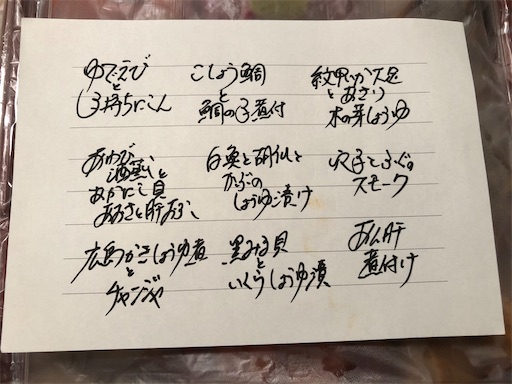 ゆでえび
と
子持ち
こしょう鯛
と
鯛の子煮付
紋甲いか
とあさり
木の芽しょうゆ
あわび
酒蒸しと
あかにし貝
白魚と
かぶの
しょうゆ漬け
穴子とふぐの
スモーク
広島かきしょうゆ煮
と
チャンジャ
黒みる貝
と
いくらしょうゆ漬
あん肝
煮付け